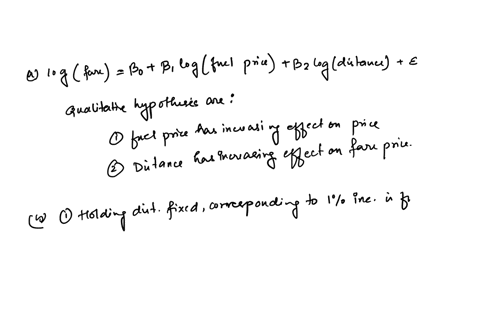 (a) log (fare) = β0 + β1 log (fuel price) + β2 log (distance) + ε
Qualitative hypothesis are :
① fuel price has increasing effect on price
② Distance has increasing effect on fare price.
(b) ① Holding dist. fixed, corresponding to 1% inc. in f